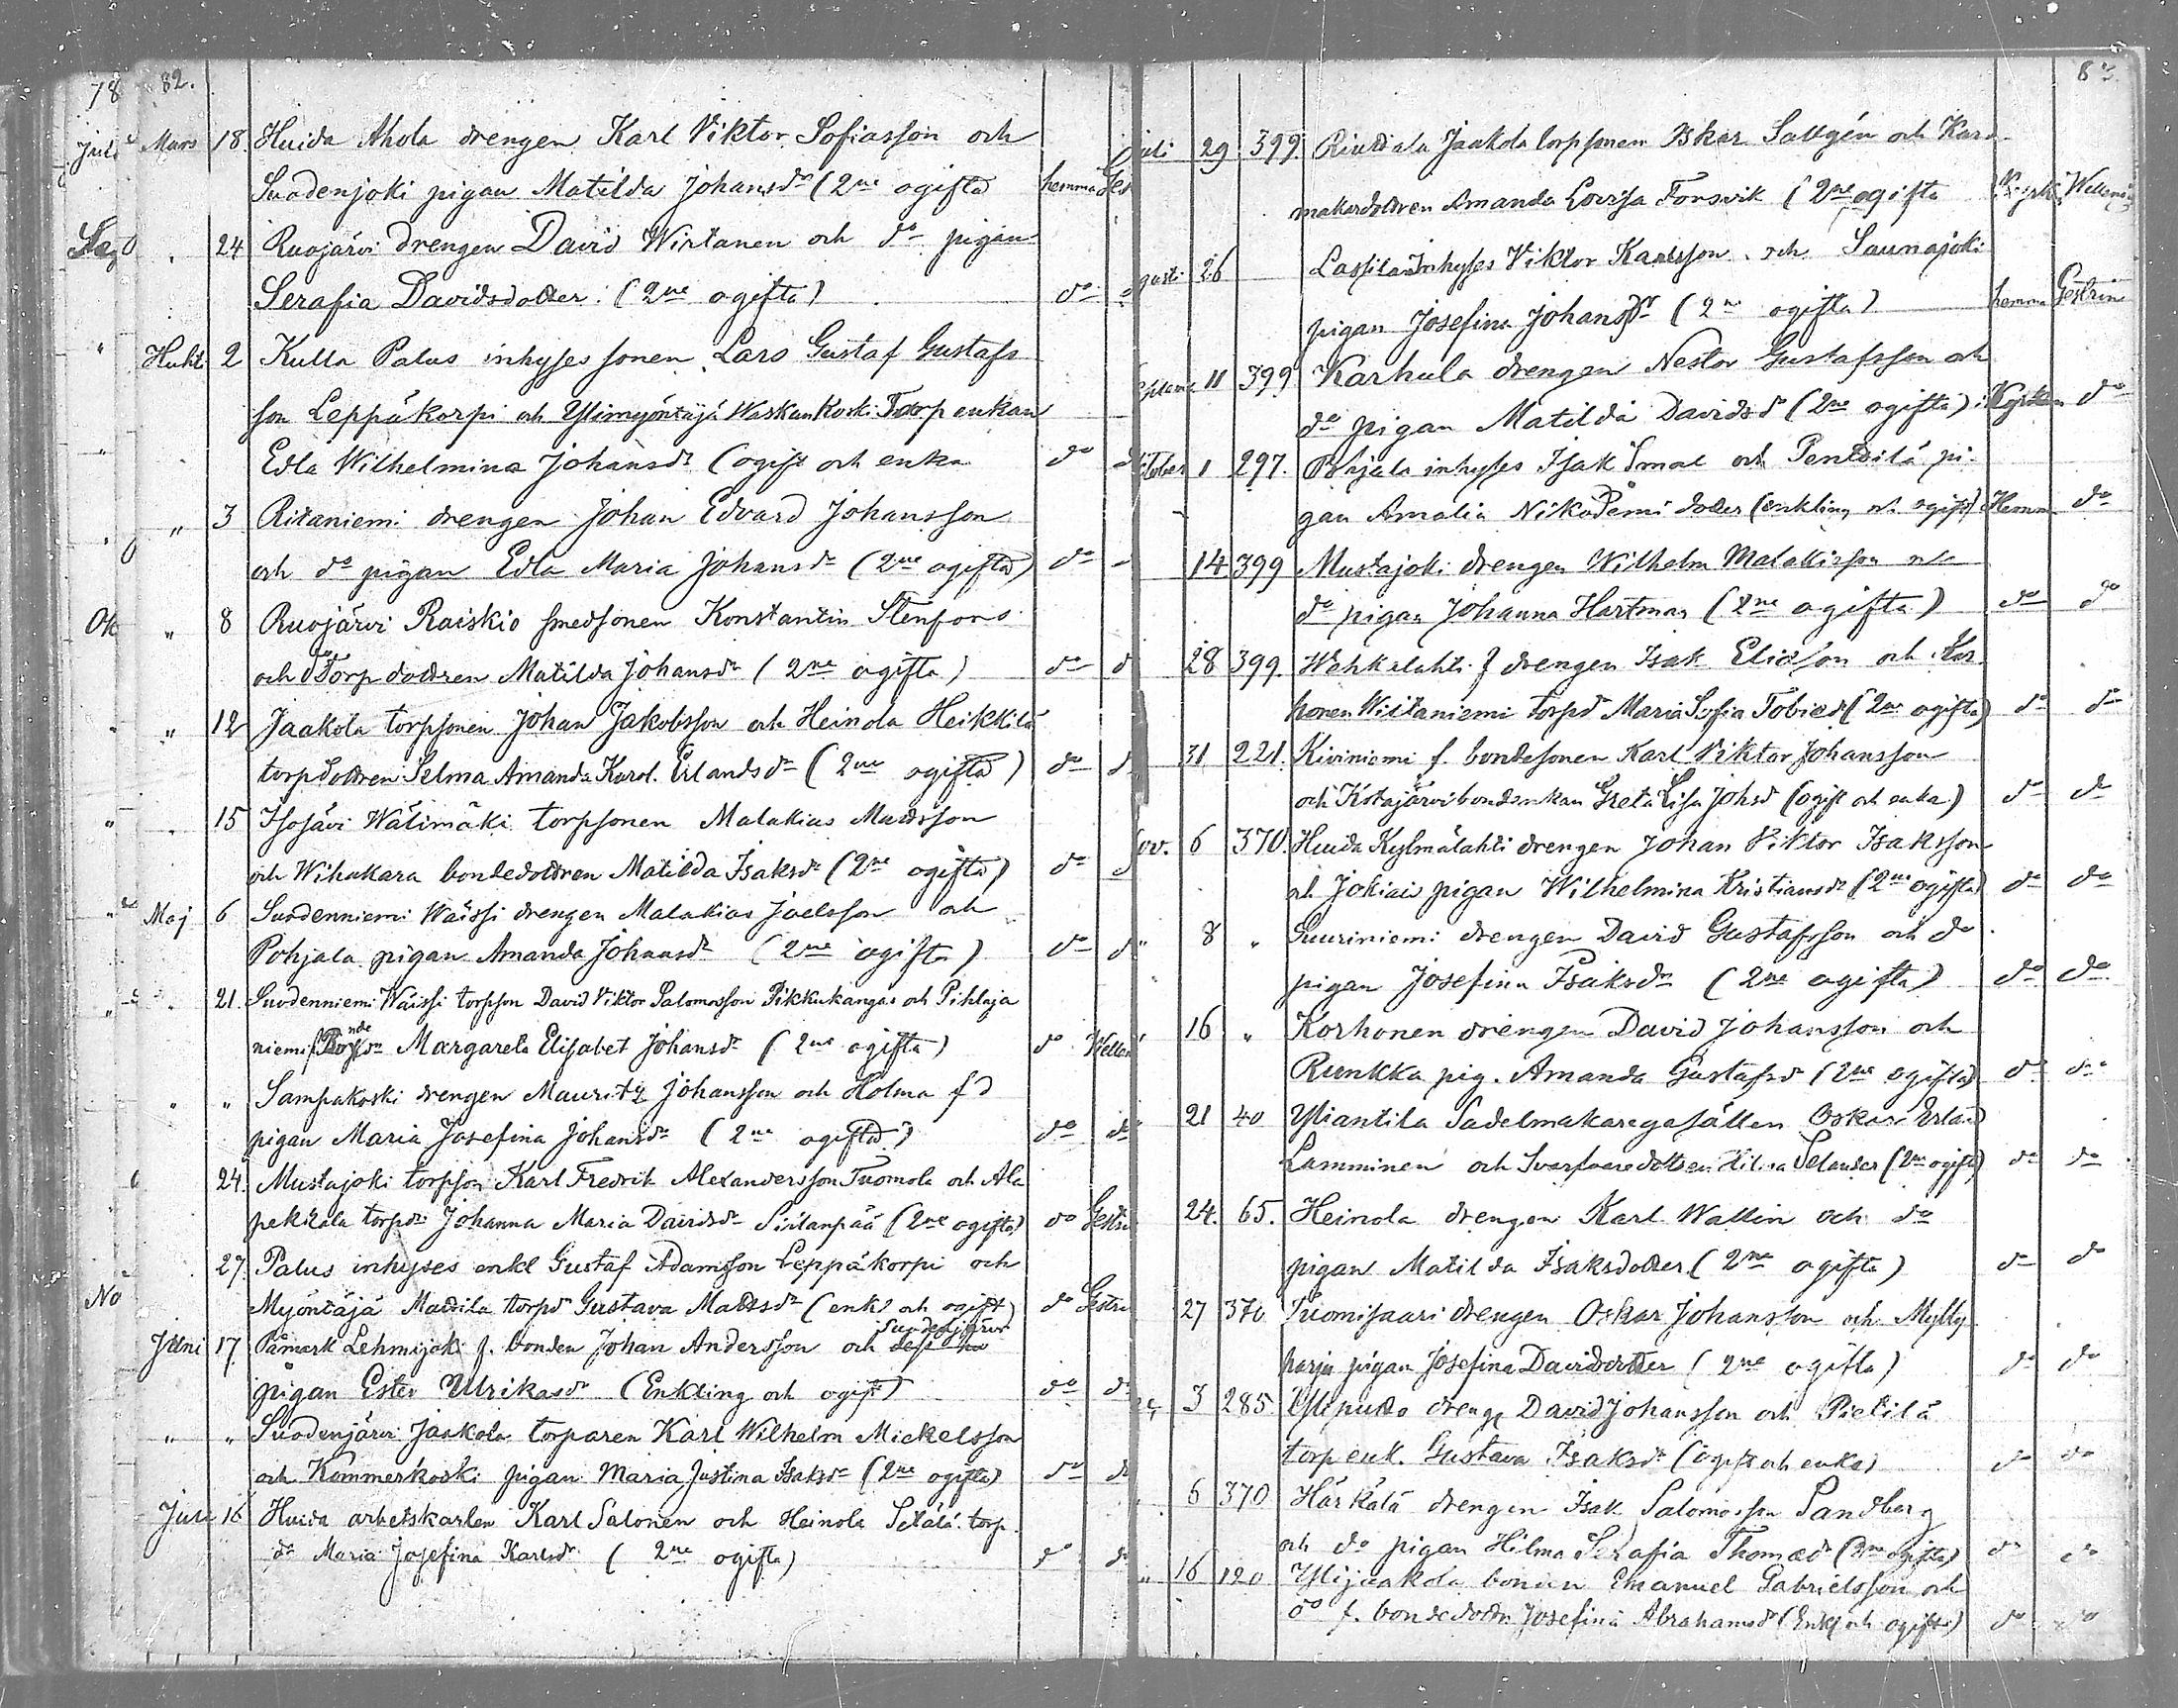 78 82.
Juli Mars 18. Huida Ahola drengen Karl Viktor Sofiasson och
Suodenjoki pigan Matilda Johansdr (2ne ogifta hemma Ges
24 Ruojärvi drengen David Wirtanen och do pigan
Serafia Davidsdotter. (2ne ogifta) do
Huht 2 Kulla Palus inhyses sonen Lars Gustaf Gustafs
son Leppäkorpi och Ylimyöntäjä Waskunkoski Torp enkan
Edla Wilhelmina Johansdr (ogift och enka do d
" 3 Ritaniemi drengen Johan Edvard Johansson
och do pigan Edla Maria Johansdr (2ne ogifta) do
Ok " 8 Ruojärvi Raiskio smedsonen Konstantin Stenfors
och do Torp dottren Matilda Johansdr (2ne ogifta) do d
" 12 Jaakola torpsonen Johan Jakobsson och Heinola Heikkilä
torpdottren Selma Amanda Karol. Erlandsdr (2ne ogifta) do d
" 15 Isojävi Wälimäki torpsonen Malakias Mattsson
och Wihukara bondedottren Matilda Isaksdr (2ne ogifta) do d
Maj 6 Suodenniemi Waissi drengen Malakias Joelsson och
Pohjala pigan Amanda Johansdr (2ne ogifta) do d
21. Suodenniemi Waissi torpson David Viktor Salomosson Pikkukangas och Pihlaja
niemi Bondedr Margareta Elisabet Johansdr (2ne ogifta) do Wellen
" Sampakoski drengen Mauritz Johansson och Holma fd
pigan Maria Josefina Johansdr (2ne ogifta) do do
24. Mustajoki torpson Karl Fredrik Alexandersson Tuomola och Ala
pekkala torpdr Johanna Maria Davidsdr Siitanpää (2ne ogifta) do Gestri
27. Palus inhyses enkl Gustaf Adamsson Leppäkorpi och
No Myöntäjä Mattila torpdr Gustava Mattsdr (enkl och ogift) do Gestri
Juni 17. Påmark Lehmijoki f. bonden Johan Andersson och
pigan Ester Ulrikasdr (Enkling och ogift) do do
" " Suodenjärvi Jaakola torparen Karl Wilhelm Mickelsson
och Kommerkoski pigan Maria Justina Isaksdr (2ne ogifta) do do
Juli 16 Huida arbetskarlen Karl Salonen och Heinola Setälä torp
dr Maria Josefina Karlsdr (2ne ogifta) do do
uli 29 399. Jaakola torpsonen Oskar Sallgén och
makardottren Amanda Lovisa Forsvik (2ne ogifta
gusti 26 Lassila Inhyses Viktor Karlsson och Saunajoki
pigan Josefina Johansdr (2ne ogifta) hemma Gestrin
eptemb 11 399 Karhula drengen Nestor Gustafsson och
do pigan Matilda Davidsdr (2ne ogifta) i Kyrkan do
ktober 1 297. Pohjala inhyses Isak Smal och Penttilä pi
gan Amalia Nikodemi dotter (enkling och ogift) Hemm do
14 399 Mustajoki drengen Wilhelm Malakisson och
do pigan Johanna Hartman (2ne ogifta) do do
28 399. Wehkalahti f drengen Isak Eliasson och Kor
honen Wiitaniemi torpdr Maria Sofia Tobiasdr (2ne ogifta) do do
31 221. Kiviniemi f. bondesonen Karl Viktor Johansson
och Kotajärvi bondenkan Greta Lisa Johsdr (ogift och enka) do do
ov. 6 370. Huida Kylmälahti drengen Johan Viktor Isaksson
och Jokiais pigan Wilhelmina Kristiansdr (2ne ogifta) do do
" 8 " Suuriniemi drengen David Gustafsson och do
pigan Josefina Isaksdr (2ne ogifta) do do
16 " Korhonen drengen David Johansson och
Runkka pig. Amanda Gustafsdr (2ne ogifta) do do
21 40 Yliantila Sadelmakaregesällen Oskar Erland
Lamminen och Svarfvaredottren Hilma Selander (2ne ogifta) do do
24. 65. Heinola drengen Karl Wallin och do
pigan Matilda Isaksdotter (2ne ogifta) do do
27 370 Suomisaari drengen Oskar Johansson och Mylly
harju pigan Josefina Davidsdotter (2ne ogifta) do do
3 285. Yliputto dreng David Johansson och Pietilä
torpenk. Gustava Isaksdr (ogift och enka) do do
6 370 Härkälä drengen Isak Salomosson Sandberg
och do pigan Hilma Serafia Thomædr (2ne ogifta) do do
" 16 120 Ylijaakola bonden Emanuel Gabrielsson och
do f. bondedottr Josefina Abrahamsdr (Enkl och ogift) do do